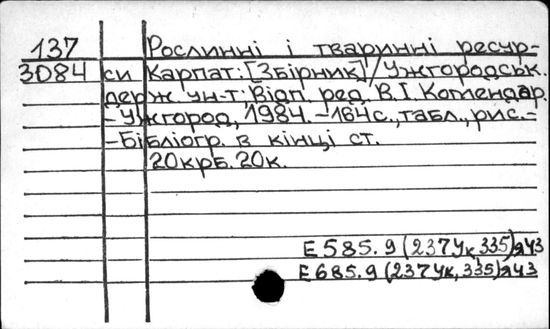 137 Рослинні і тваринні ресур-
3084 си Карпат: [Збірник] / Ужгородськ.
держ. ун-т: Відп. ред. В. І. Комендар.
- Ужгород, 1984. - 164 с., табл., рис. -
- Бібліогр. в кінці ст.
20 крб. 20 к.
Е 585.9 (237Ук,335)я43
Е 685.9 (237Ук,335)я43